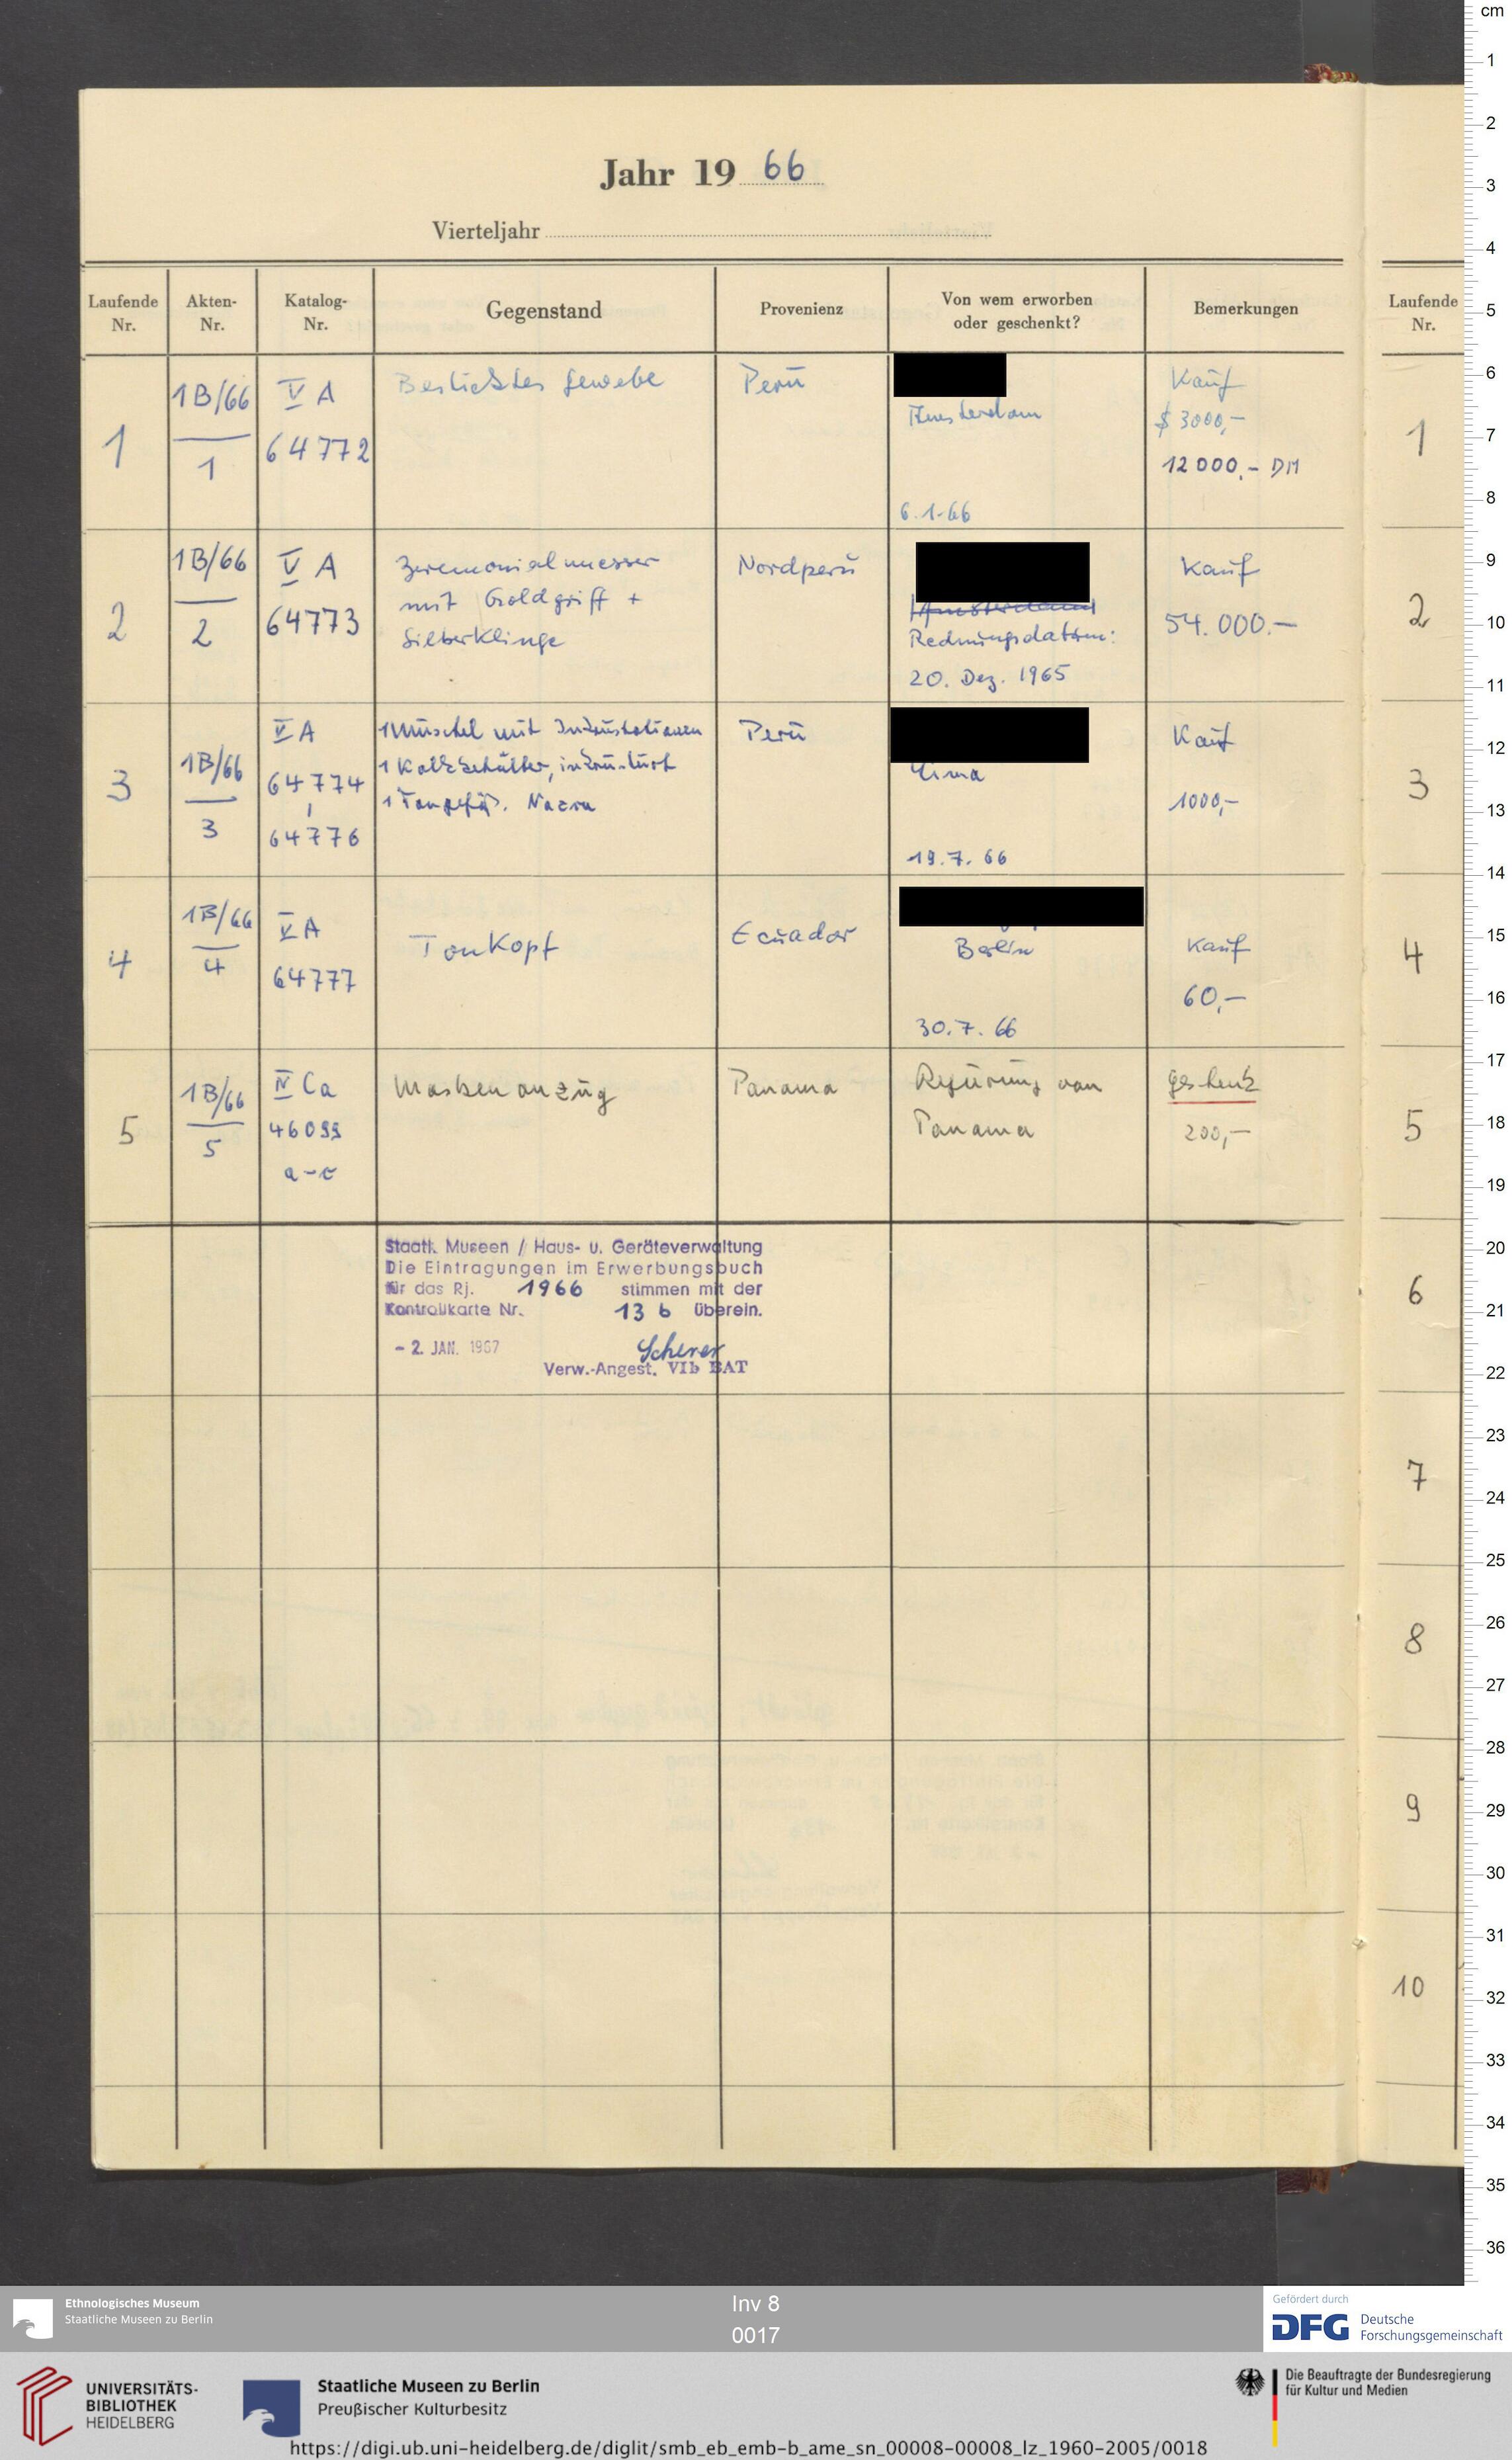 Jahr 19 66
Vierteljahr
Laufende Nr.
Akten-Nr.
Katalog-Nr.
Gegenstand
Provenienz
Von wem erworben oder geschenkt?
Bemerkungen
Laufende Nr.
1
1B/66
1
V A
64772
Besticktes Gewebe
Perú
Amsterdam
6.1.66
Kauf
$ 3000,-
12000,- DM
1
2
1B/66
2
V A
64773
Zeremonialmesser
mit Goldgriff +
Silberklinge
Nordperú
Amsterdam
Rechnungsdatum:
20. Dez. 1965
Kauf
54.000.-
2
3
1B/66
3
V A
64774
64776
1 Muschel mit Inkrustationen
1 Kalkbehälter, inkrustiert
1 Tongefäß. Nazca
Perú
Lima
19.7.66
Kauf
1000,-
3
4
1B/66
4
V A
64777
Tonkopf
Ecuador
Berlin
30.7.66
Kauf
60,-
4
5
1B/66
5
IV Ca
46099
a-c
Maskenanzug
Panama
Regierung von
Panama
Geschenk
200,-
5
Staatl. Museen / Haus- u. Geräteverwaltung
Die Eintragungen im Erwerbungsbuch
für das Rj. 1966 stimmen mit der
Kontrollkarte Nr. 13 b überein.
- 2. JAN. 1967
Scherer
Verw.-Angest. VIb BAT
6
7
8
9
10
cm
1
2
3
4
5
6
7
8
9
10
11
12
13
14
15
16
17
18
19
20
21
22
23
24
25
26
27
28
29
30
31
32
33
34
35
36
Ethnologisches Museum
Staatliche Museen zu Berlin
Inv 8
0017
Gefördert durch
DFG Deutsche
Forschungsgemeinschaft
UNIVERSITÄTS-
BIBLIOTHEK
HEIDELBERG
Staatliche Museen zu Berlin
Preußischer Kulturbesitz
Die Beauftragte der Bundesregierung
für Kultur und Medien
https://digi.ub.uni-heidelberg.de/diglit/smb_eb_emb-b_ame_sn_00008-00008_lz_1960-2005/0018